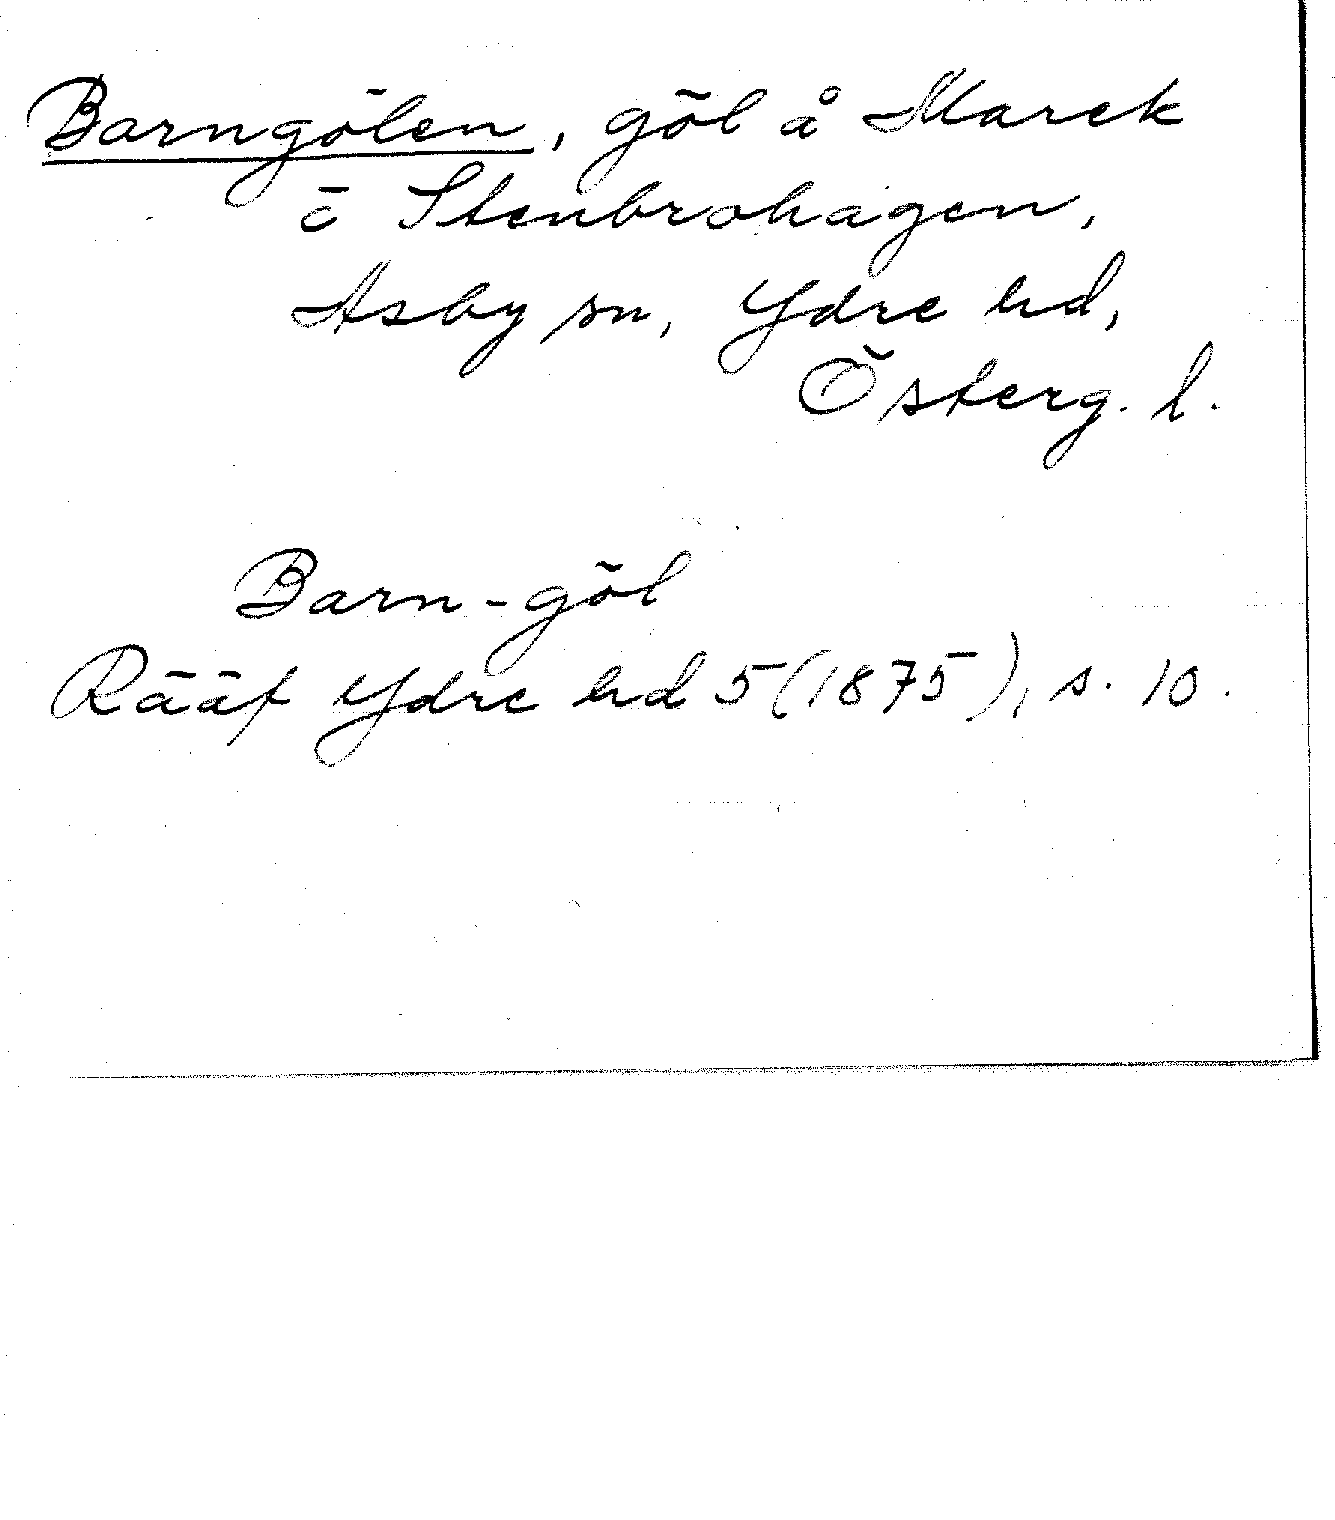 Barngölen, göl å Marek
ö Stenbrohagen,
Asby sn, Ydre hd,
Österg. l.
Barn-göl
Rääf Ydre hd 5 (1875), s. 10.